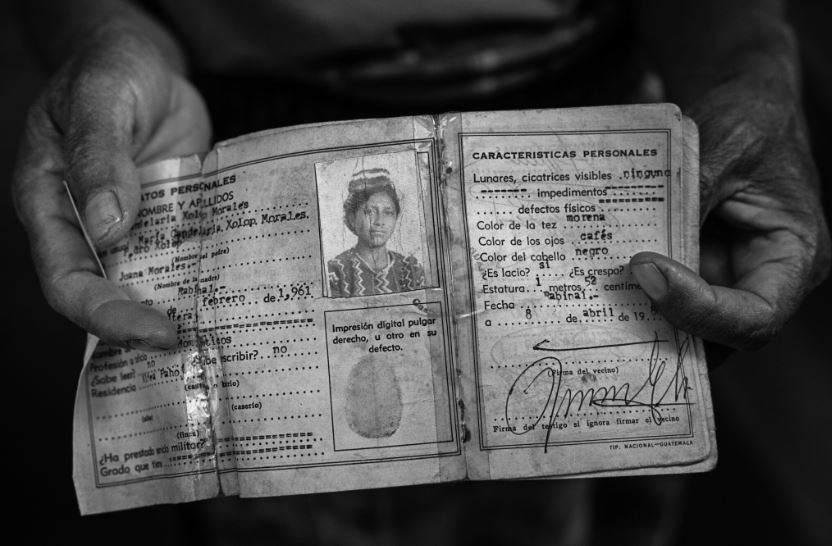 ATOS PERSONALES
NOMBRE Y APELLIDOS
delaria Xolop Morales
María Candelaria Xolop Morales.
Pedro Xolop
(Nombre del padre)
Juana Morales.-
(Nombre de la madre)
Rabinal.-
de febrero de 1,961
domésticos
Profesión u oficio
¿Sabe leer? no ¿Sabe escribir? no
Residencia
(caserío)
(finca)
¿Ha prestado servicio militar?
Grado que tiene
Impresión digital pulgar
derecho, u otro en su
defecto.
CARACTERISTICAS PERSONALES
Lunares, cicatrices visibles ninguna
impedimentos
defectos físicos
Color de la tez morena
Color de los ojos cafés
Color del cabello negro
¿Es lacio? si ¿Es crespo?
Estatura 1 metros 52 centíme
Fecha Rabinal.-
a 8 de abril de 19
(Firma del vecino)
Firma del testigo si ignora firmar el vecino
TIP. NACIONAL—GUATEMALA